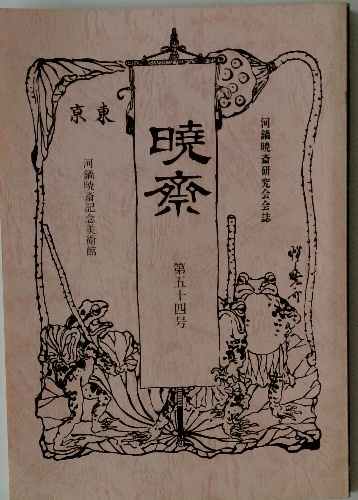 河鍋暁斎研究会会誌
暁斎
第五十四号
東京
河鍋暁斎記念美術館